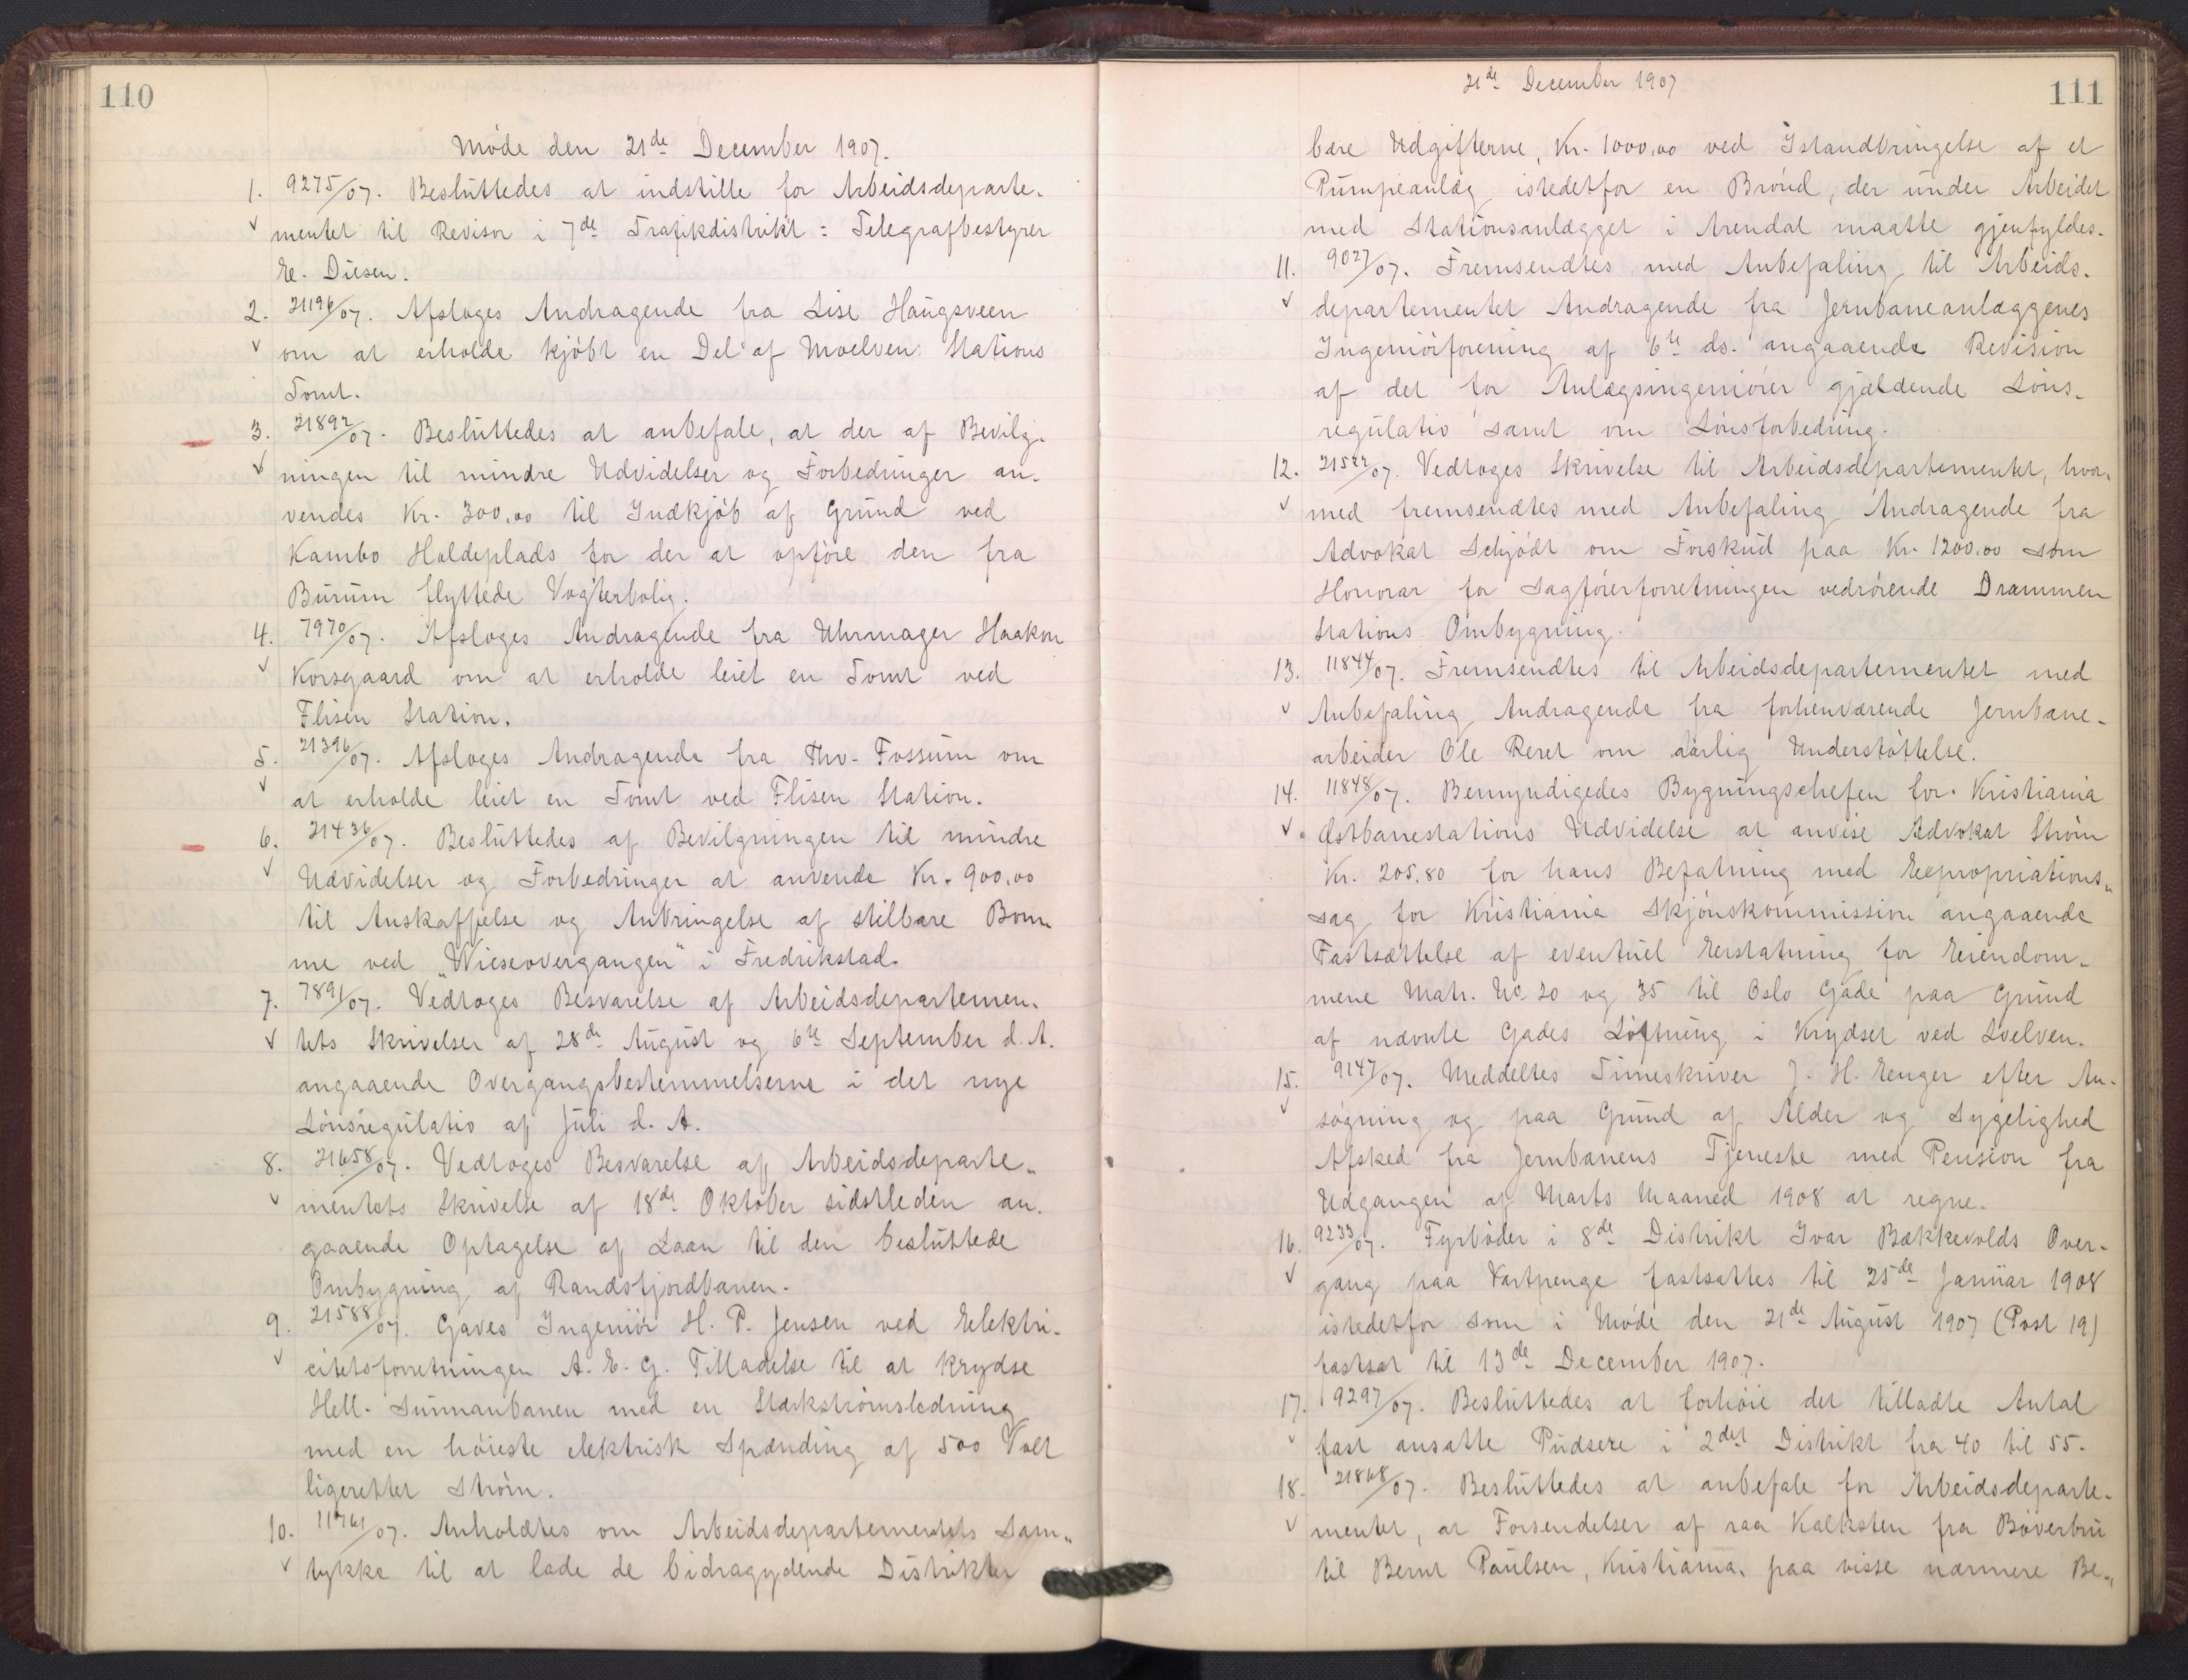 110
Møde den 21de December 1907.
1. 9275/07. Besluttedes at indstille for Arbeidsdeparte-
mentet til Revisor i 7de Trafikdistrikt: Telegrafbestyrer
E. Diesen.
2. 21196/07. Afsloges Andragende fra Lise Haugsveen
om at erholde kjøbt en Del af Moelven Stations
Tomt.
3. 21892/07. Besluttedes at anbefale, at der af Bevilg-
ningen til mindre Udvidelser og Forbedringer an-
vendes Kr. 300,00 til Indkjøb af Grund ved
Kambo Holdeplads for der at opføre den fra
Burum flyttede Vogterbolig.
4. 7970/07. Afsloges Andragende fra Uhrmager Haakon
Korsgaard om at erholde leiet en Tomt ved
Flisen Station.
5. 21396/07. Afsloges Andragende fra Thv. Fossum om
at erholde leiet en Tomt ved Flisen Station.
6. 21436/07. Besluttedes af Bevilgningen til mindre
Udvidelser og Forbedringer at anvende Kr. 900,00
til Anskaffelse og Anbringelse af stilbare Bom-
me ved „Wieseovergangen“ i Fredrikstad.
7. 7891/07. Vedtoges Besvarelse af Arbeidsdepartemen-
tets Skrivelser af 28de August og 6te September d. A.
angaaende Overgangsbestemmelserne i det nye
Lønsregulativ af Juli d. A.
8. 21658/07. Vedtoges Besvarelse af Arbeidsdeparte-
mentets Skrivelse af 18de Oktober sidstleden an-
gaaende Optagelse af Laan til den besluttede
Ombygning af Randsfjordbanen.
9. 21588/07. Gaves Ingeniør H. P. Jensen ved Elektri-
citetsforretningen A. E. G. Tilladelse til at krydse
Hell-Sunnanbanen med en Stærkstrømsledning
med en høieste elektrisk Spænding af 500 Volt
ligerettet Strøm.
10. 11761/07. Anholdtes om Arbeidsdepartementets Sam-
tykke til at lade de bidragydende Distrikter
21de December 1907
111
bære Udgifterne, Kr. 1000,00 ved Istandbringelse af et
Pumpeanlæg istedetfor en Brønd, der under Arbeidet
med Stationsanlægget i Arendal maatte gjenfyldes.
11. 9027/07. Fremsendtes med Anbefaling til Arbeids-
departementet Andragende fra Jernbaneanlæggenes
Ingeniørforening af 6te ds. angaaende Revision
af det for Anlægsingeniører gjældende Løns-
regulativ samt om Lønsforbedring.
12. 21522/07. Vedtoges Skrivelse til Arbeidsdepartementet, hvor-
med fremsendtes med Anbefaling Andragende fra
Advokat Schjødt om Forskud paa Kr. 1200,00 som
Honorar for Sagførerforretningen vedrørende Drammen
Stations Ombygning.
13. 11844/07. Fremsendtes til Arbeidsdepartementet med
Anbefaling Andragende fra forhenværende Jernbane-
arbeider Ole Reret om aarlig Understøttelse.
14. 11848/07. Bemyndigedes Bygningschefen for Kristiania
Østbanestations Udvidelse at anvise Advokat Strøm
Kr. 205.80 for hans Befatning med Expropriations-
sag for Kristiania Skjønskommission angaaende
Fastsættelse af eventuel Erstatning for Eiendom-
mene Matr. No. 20 og 35 til Oslo Gade paa Grund
af nævnte Gades Løftning i Krydset ved Loelven.
15. 9147/07. Meddeltes Timeskriver J. H. Enger efter An-
søgning og paa Grund af Alder og Sygelighed
Afsked fra Jernbanens Tjeneste med Pension fra
Udgangen af Marts Maaned 1908 at regne.
16. 9233/07. Fyrbøder i 8de Distrikt Ivar Bækkevolds Over-
gang paa Vartpenge fastsattes til 25de Januar 1908
istedetfor som i Møde den 21de August 1907 (Post 19)
fastsat til 13de December 1907.
17. 9297/07. Besluttedes at forhøie det tilladte Antal
fast ansatte Pudsere i 2det Distrikt fra 40 til 55.
18. 21868/07. Besluttedes at anbefale for Arbeidsdeparte-
mentet, at Forsendelser af raa Kalksten fra Bøverbru
til Bernt Paulsen, Kristiania, paa visse nærmere Be-